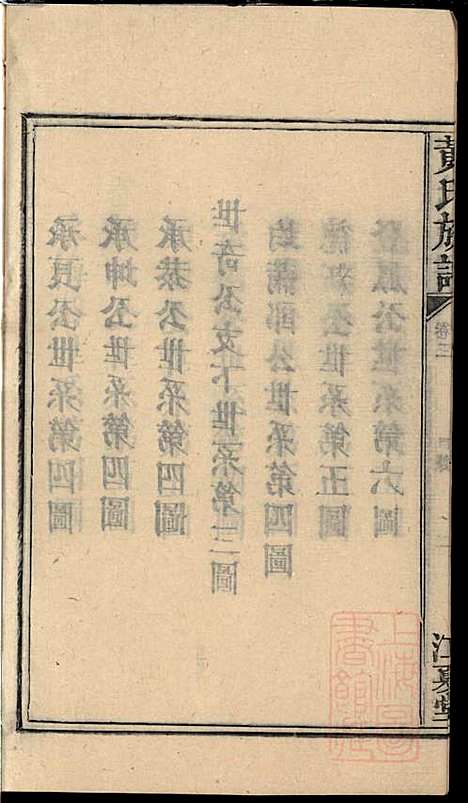 黃氏族譜
卷三
江夏堂
公世系第六圖
公世系第五圖
公世系第四圖
世奇公支下世系第三圖
承恭公世系第四圖
承坤公世系第四圖
承良公世系第四圖
上海圖書館藏